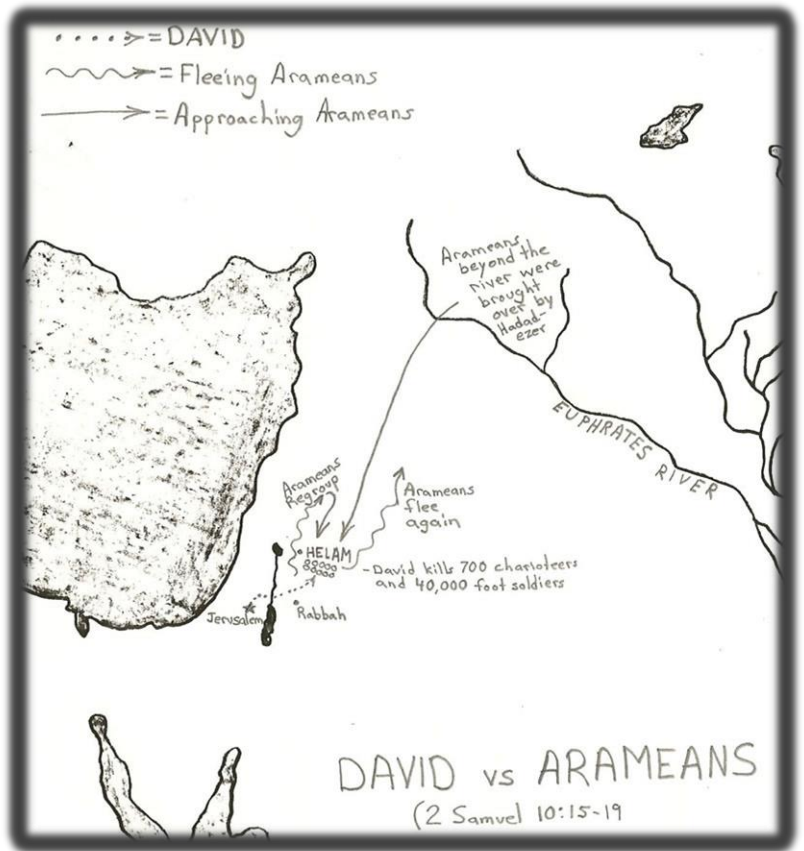 = DAVID
= Fleeing Arameans
= Approaching Arameans
Arameans
beyond the
river were
brought
over by
Hadad-
ezer
EUPHRATES RIVER
Arameans
Regroup
Arameans
flee
again
HELAM
-David kills 700 charioteers
and 40,000 foot soldiers
Jerusalem
Rabbah
DAVID vs ARAMEANS
(2 Samuel 10:15-19